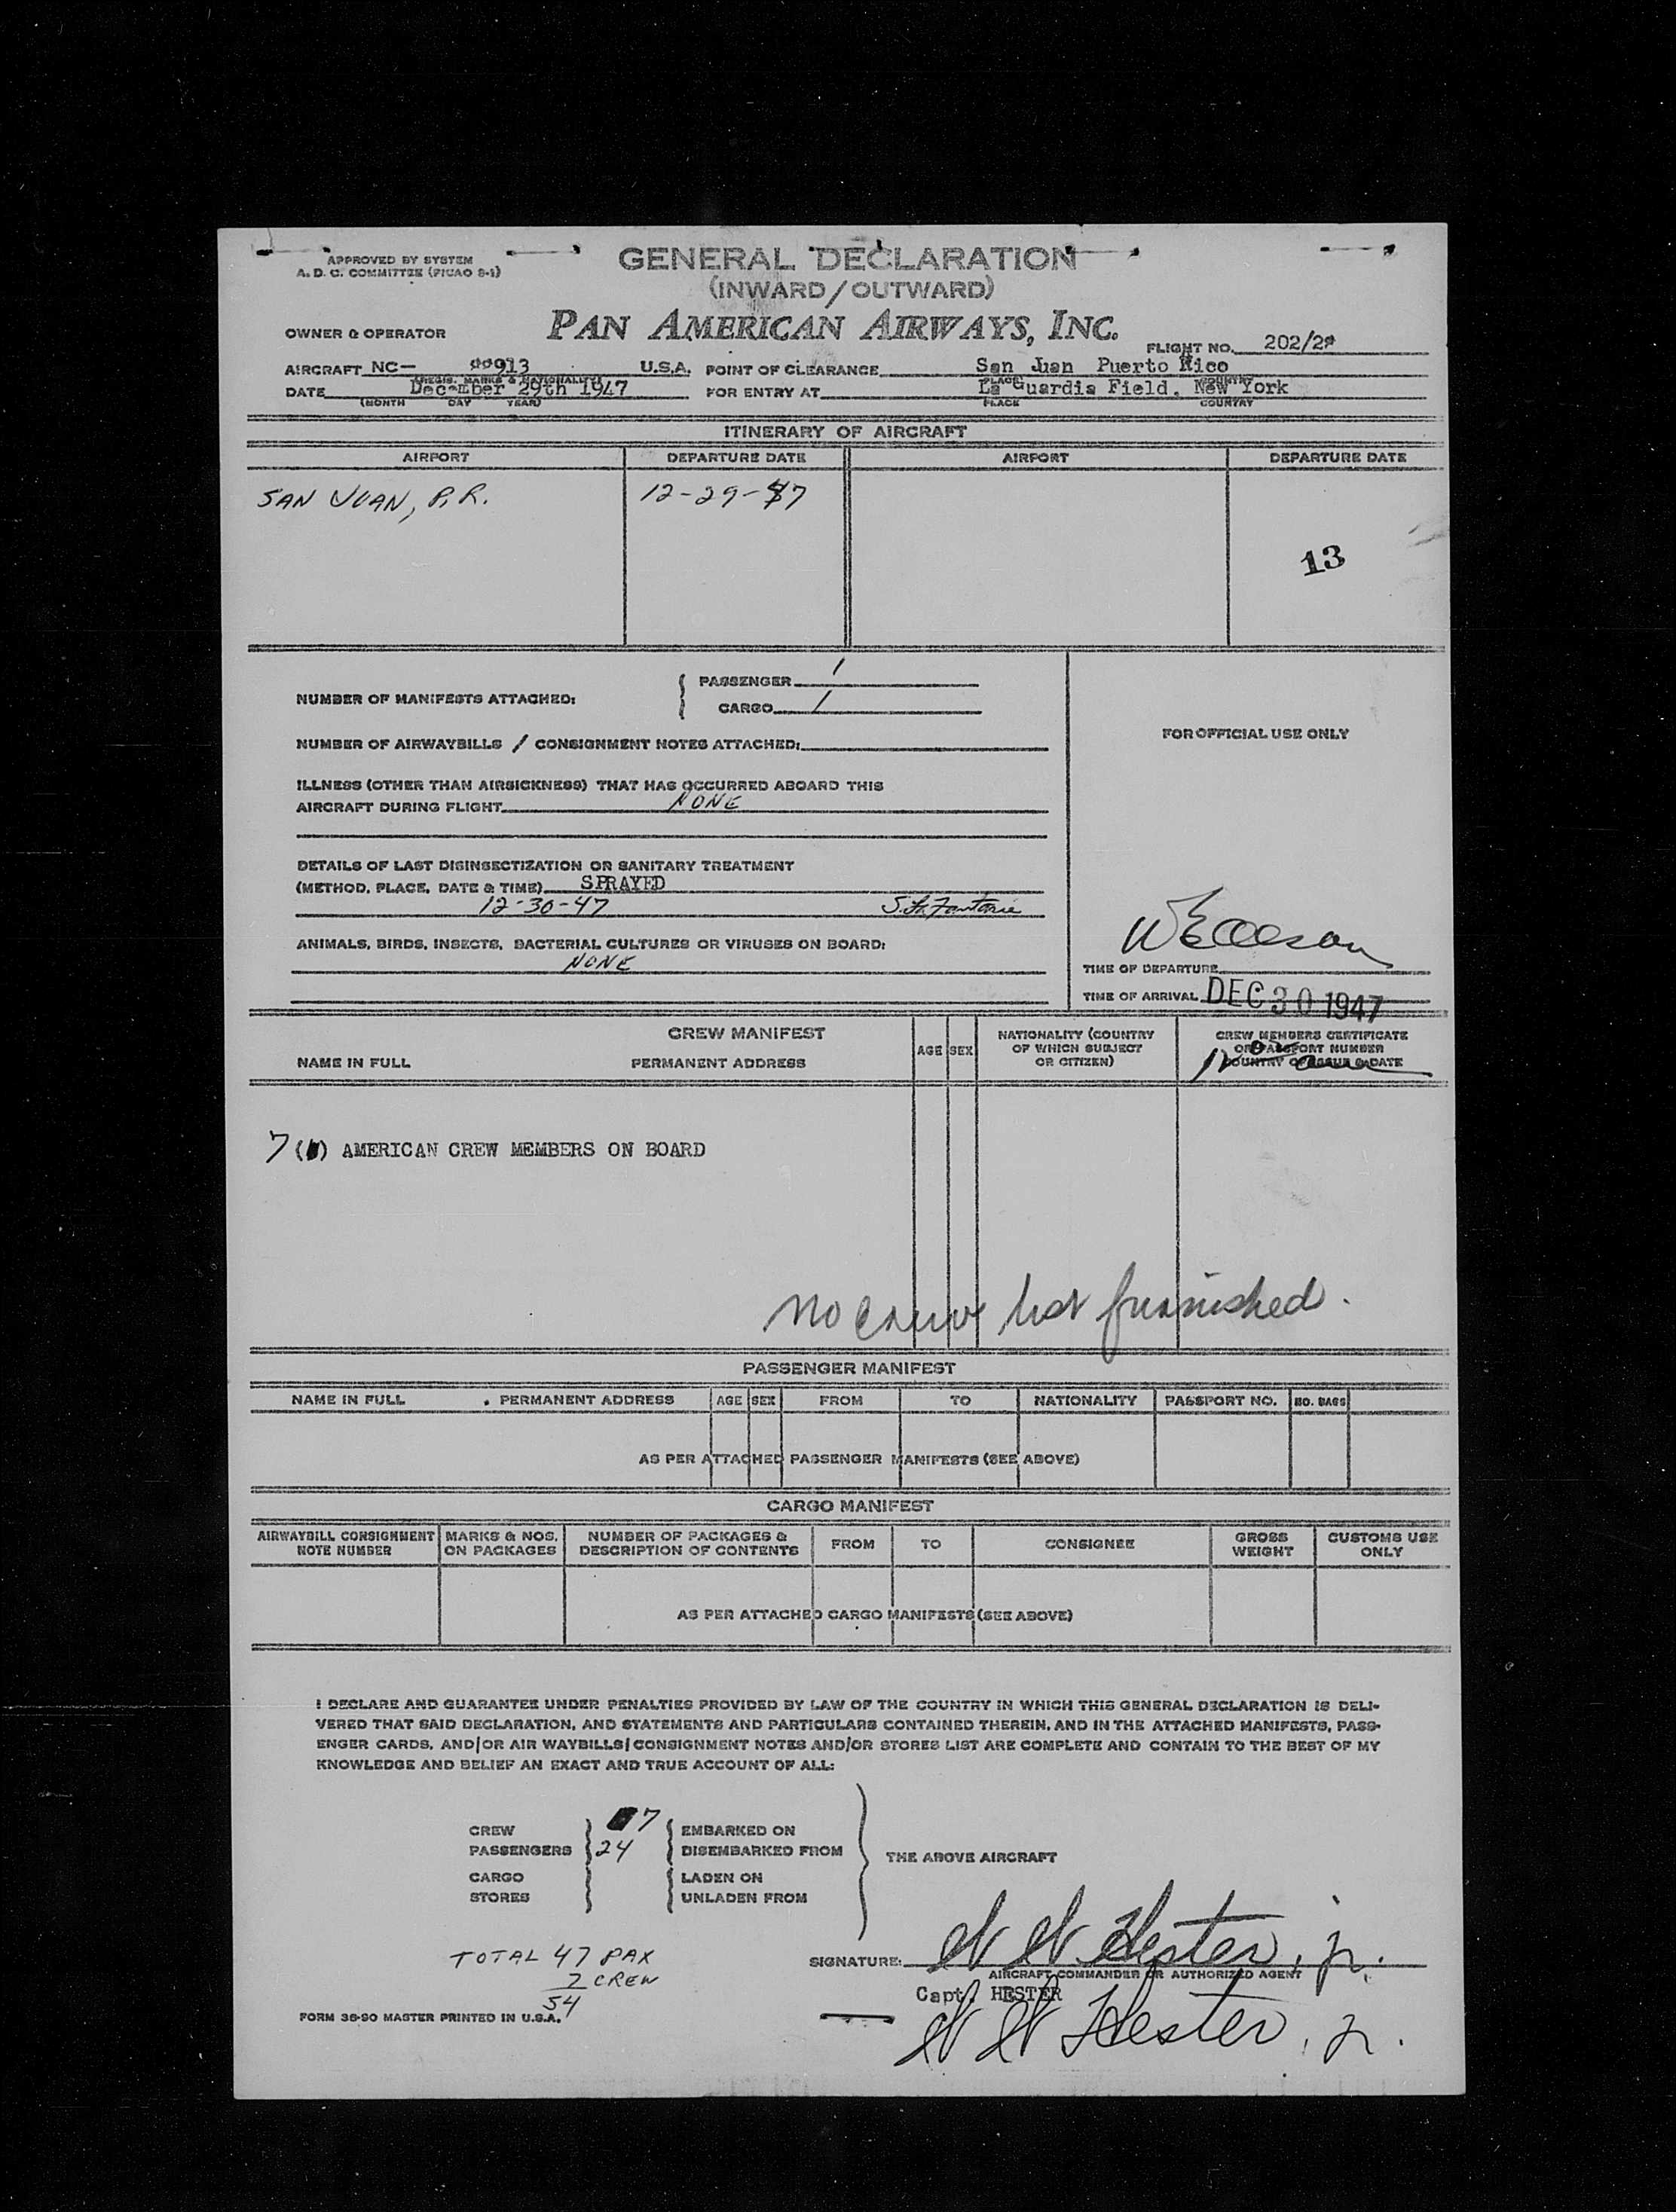 APPROVED BY SYSTEM
A. D. C. COMMITTEE (PICAO S-1)
GENERAL DECLARATION
(INWARD/OUTWARD)
OWNER & OPERATOR
PAN AMERICAN AIRWAYS, INC.
FLIGHT NO. 202/2
AIRCRAFT NC- 913 U.S.A. POINT OF CLEARANCE San Juan Puerto Rico
(REGIS. MARKS & NATIONALITY) PLACE COUNTRY
DATE December 29th 1947 FOR ENTRY AT La Guardia Field. New York
(MONTH DAY YEAR) PLACE COUNTRY
ITINERARY OF AIRCRAFT
AIRPORT DEPARTURE DATE AIRPORT DEPARTURE DATE
SAN JUAN, P.R. 12-29-47
13
NUMBER OF MANIFESTS ATTACHED: PASSENGER 1
CARGO 1
FOR OFFICIAL USE ONLY
NUMBER OF AIRWAYBILLS / CONSIGNMENT NOTES ATTACHED:
ILLNESS (OTHER THAN AIRSICKNESS) THAT HAS OCCURRED ABOARD THIS
AIRCRAFT DURING FLIGHT NONE
DETAILS OF LAST DISINSECTIZATION OR SANITARY TREATMENT
(METHOD, PLACE, DATE & TIME) SPRAYED
12-30-47
ANIMALS, BIRDS, INSECTS, BACTERIAL CULTURES OR VIRUSES ON BOARD:
NONE
TIME OF DEPARTURE
TIME OF ARRIVAL DEC 30 1947
CREW MANIFEST
NAME IN FULL PERMANENT ADDRESS AGE SEX
NATIONALITY (COUNTRY
OF WHICH SUBJECT
OR CITIZEN)
CREW MEMBERS CERTIFICATE
OR PASSPORT NUMBER
COUNTRY OF ISSUE & DATE
7 ( ) AMERICAN CREW MEMBERS ON BOARD
No crew list furnished.
PASSENGER MANIFEST
NAME IN FULL PERMANENT ADDRESS AGE SEX FROM TO NATIONALITY PASSPORT NO. NO. BAGS
AS PER ATTACHED PASSENGER MANIFESTS (SEE ABOVE)
CARGO MANIFEST
AIRWAYBILL CONSIGNMENT
NOTE NUMBER
MARKS & NOS.
ON PACKAGES
NUMBER OF PACKAGES &
DESCRIPTION OF CONTENTS
FROM TO CONSIGNEE
GROSS
WEIGHT
CUSTOMS USE
ONLY
AS PER ATTACHED CARGO MANIFESTS (SEE ABOVE)
I DECLARE AND GUARANTEE UNDER PENALTIES PROVIDED BY LAW OF THE COUNTRY IN WHICH THIS GENERAL DECLARATION IS DELI-
VERED THAT SAID DECLARATION, AND STATEMENTS AND PARTICULARS CONTAINED THEREIN, AND IN THE ATTACHED MANIFESTS, PASS-
ENGER CARDS, AND/OR AIR WAYBILLS/CONSIGNMENT NOTES AND/OR STORES LIST ARE COMPLETE AND CONTAIN TO THE BEST OF MY
KNOWLEDGE AND BELIEF AN EXACT AND TRUE ACCOUNT OF ALL:
CREW 7 EMBARKED ON
PASSENGERS 24 DISEMBARKED FROM
THE ABOVE AIRCRAFT
CARGO LADEN ON
STORES UNLADEN FROM
TOTAL 47 PAX
7 CREW
54
SIGNATURE: Hester, jr.
AIRCRAFT COMMANDER OR AUTHORIZED AGENT
Capt. HESTER
Hester, jr.
FORM 36-90 MASTER PRINTED IN U.S.A.